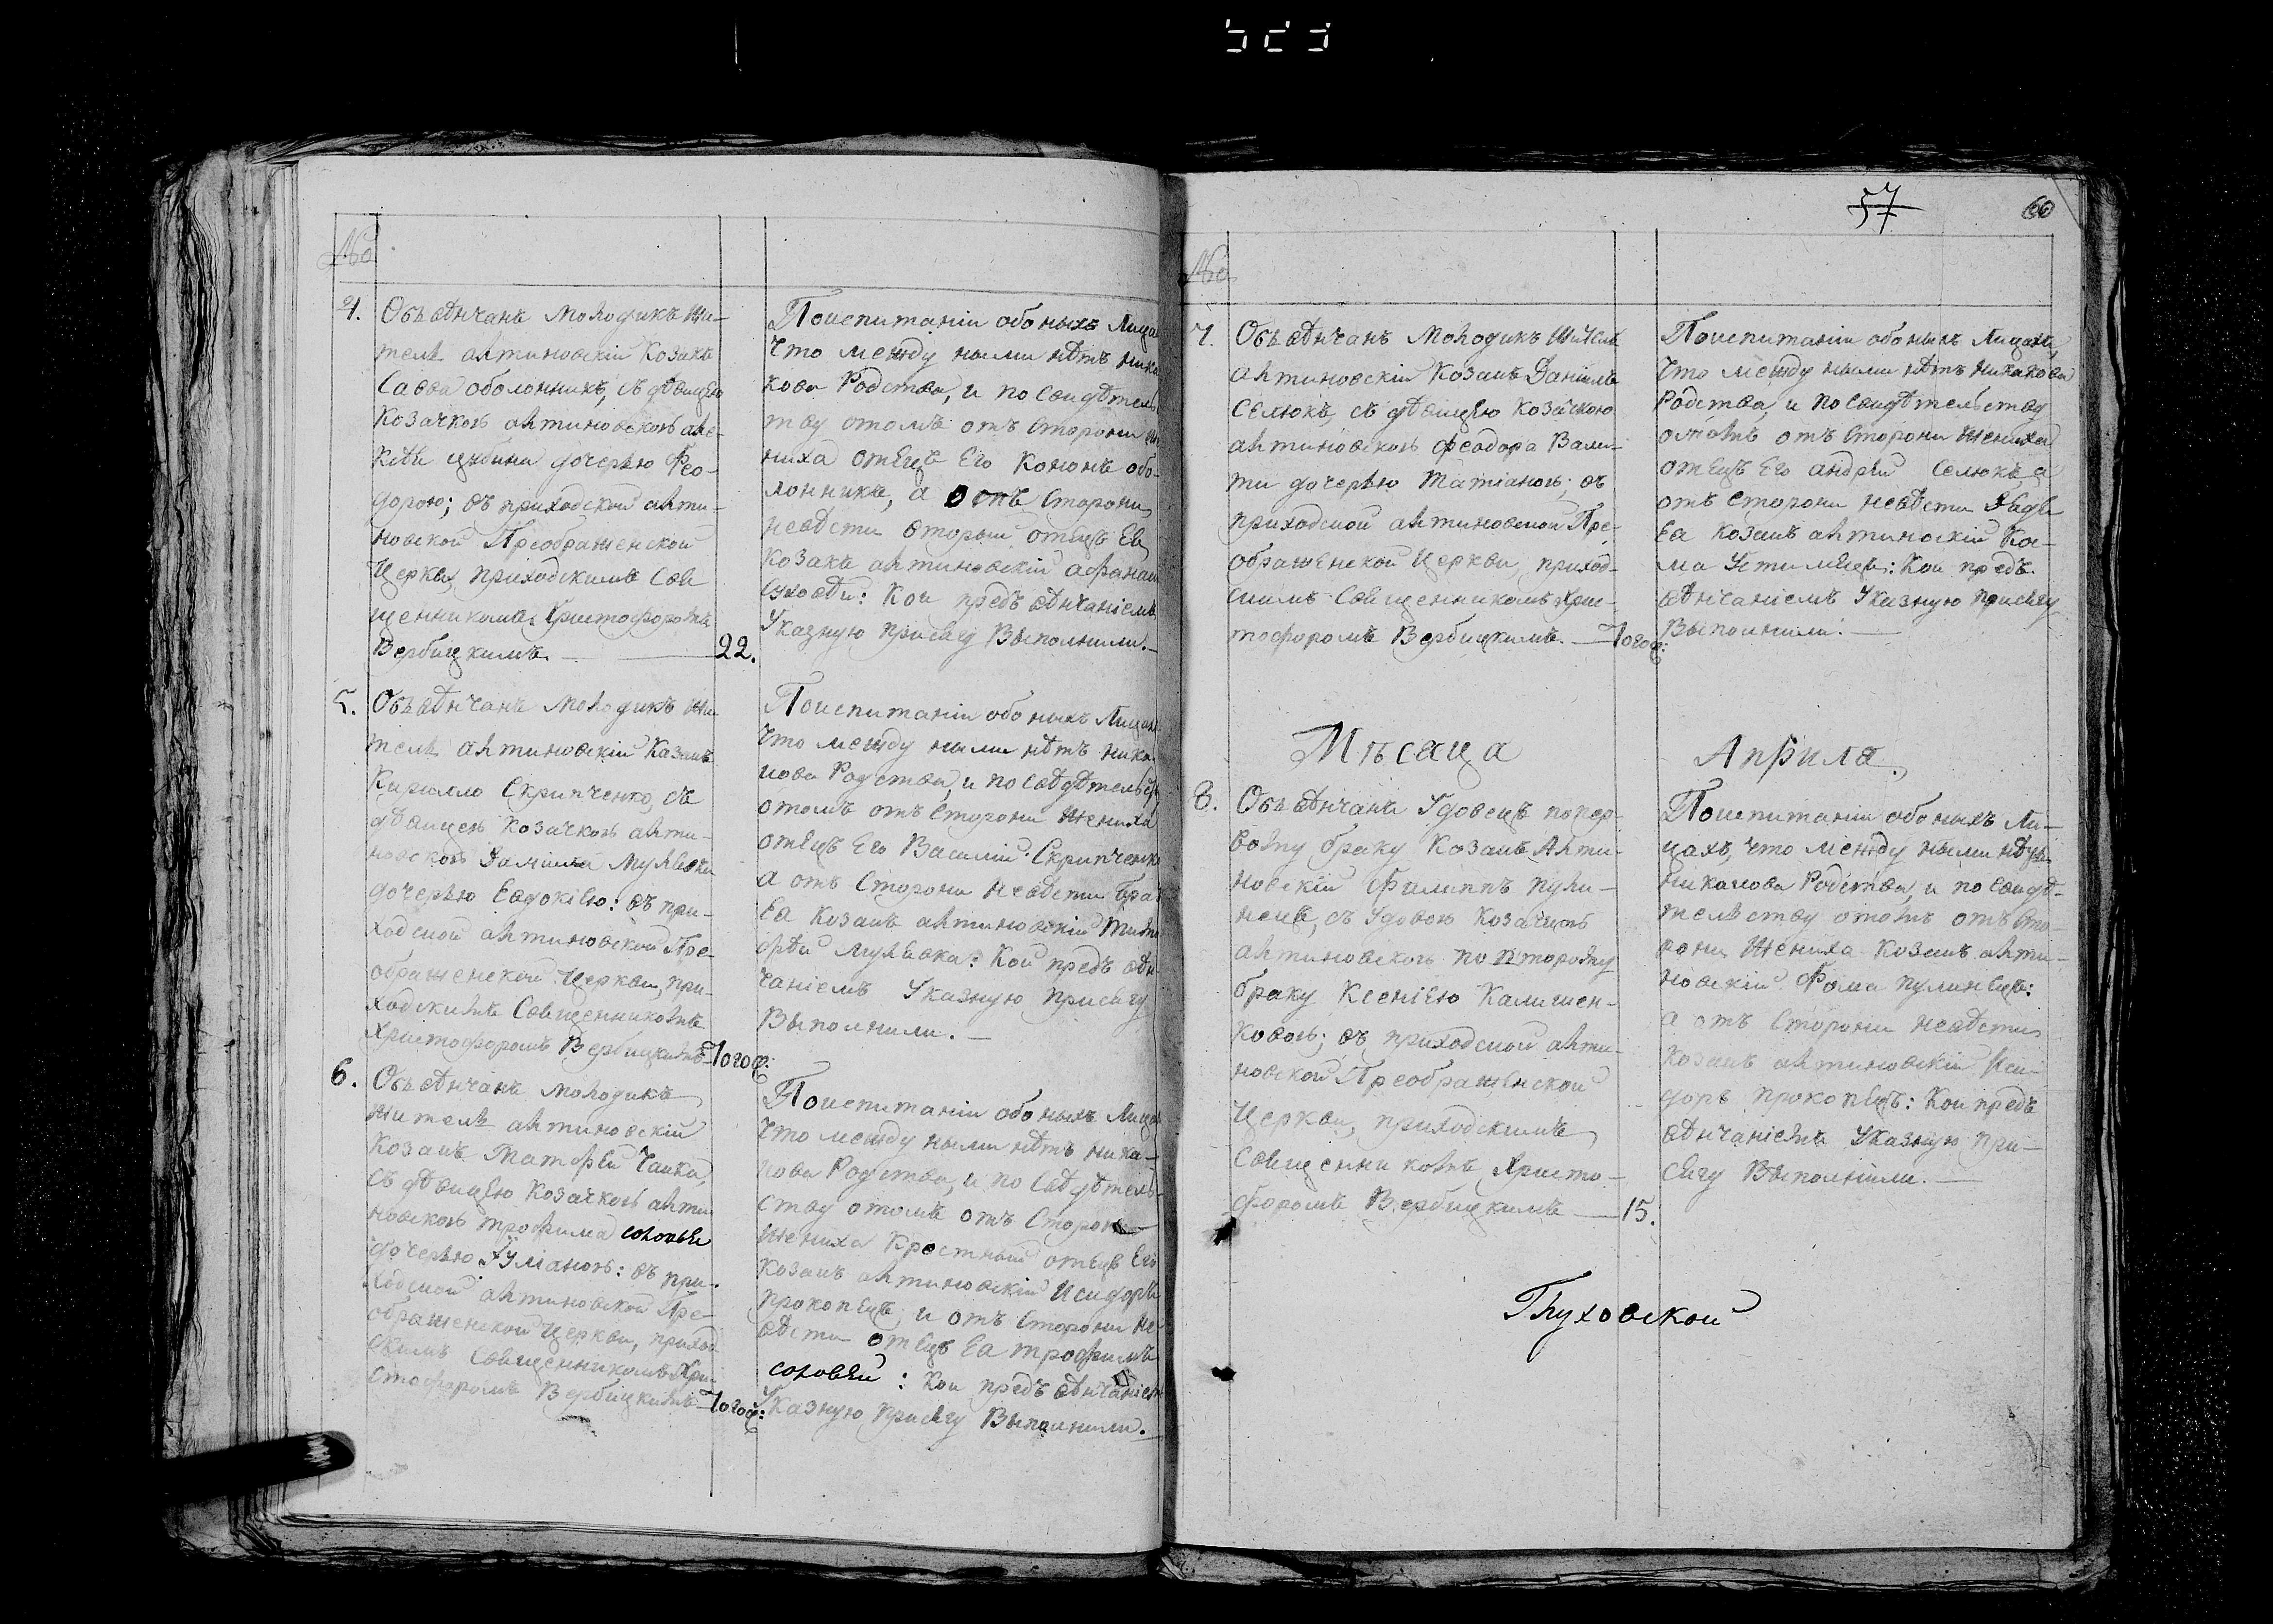 №
4.
Объвѣнчанъ молодикъ жи-
тель алтиновскій козакъ
Савва оболонникъ, съ дѣвицею
козачкою алтиновскою але-
дочерью Фео-
дорою; въ приходской алти-
новской Преображенской
Церкви, приходскимъ Свя
щенникомъ Христофоромъ
Вербицкимъ. — 22.
Поиспитаніи обоныхъ Лицах
что между ными нѣтъ ника
кова Родства, и по свидѣтель
тву отомъ отъ Сторони же
ниха отецъ Его Кононъ обо-
лонникъ, а отъ Сторони
невѣсти вторый отецъ Ея
козакъ алтиновскій афанасій
: Кои предъ вѣнчаніемъ
Указную присягу Выполнили. —
5.
Объвѣнчанъ молодикъ жи
тель алтиновскій Казакъ
Кирилло Скрипченко, съ
дѣвицею козачкою алти-
новскою Даніила Мулявки
дочерью Евдокіею: въ при-
ходской алтиновской Пре-
ображенской Церкви, при-
ходскимъ Священникомъ
Христофоромъ Вербицкимъ — Тогож:
Поиспитаніи обоныхъ Лицах
что между ными нѣтъ ника
кова Родства, и по свѣдѣтельств
отомъ отъ Сторони жениха
отецъ Его Василій Скрипченко
а отъ Сторони невѣсти брат
Ея козакъ алтиновскій Тимо
фѣй Мулявка: Кои предъ вѣн
чаніемъ Указную присягу
Выполнили. —
6.
Объвѣнчанъ молодикъ
житель алтиновскій
Козакъ Матфей Чайка,
съ дѣвицею козачкою алти
новскою трофима соловья
дочерью Іуліаною: въ при-
ходской алтиновской Пре-
ображенской Церкви, приход
скимъ Священникомъ Хри
стофоромъ Вербицкимъ — Тогож:
Поиспитаніи обоныхъ Лицах
что между ными нѣтъ ника-
кова Родства, и по свѣдѣтель-
ству отомъ отъ Сторони
жениха Крестный отецъ Его
козакъ алтиновскій Исидоръ
прокопецъ, и отъ Сторони не
вѣсти отецъ Ея трофимъ
соловей: Кои предъ вѣнчаніем
Указную присягу Выполнили. —
57
60
№
7.
Объвѣнчанъ молодикъ житель
алтиновскій козакъ Даніилъ
Селюкъ, съ дѣвицею козачкою
алтиновскою феодора Вали-
ти дочерью Татіаною; въ
приходской алтиновской Пре-
ображенской Церкви, приход-
скимъ Священникомъ Хрис-
тофоромъ Вербицкимъ. — Тогож:
Поиспитаніи обоныхъ Лицахъ,
что между ными нѣтъ никакова
Родства, и по свидѣтельству
отомъ отъ Сторони жениха
отецъ Его андрей Селюкъ, а
отъ Сторони невѣсти дядя
Ея козакъ алтиноскій Кос-
ма : Кои предъ
вѣнчаніемъ Указную присягу
Выполнили. —
Мѣсяца Априля.
8.
Объвѣнчанъ Удовецъ попер-
вому браку козакъ Алти-
новскій Филиппъ Пули-
нецъ, съ Удовою козачкою
алтиновскою по второму
браку Ксеніею Калишен-
ковою; въ приходской алти-
новской Преображенской
Церкви, приходскимъ
Священникомъ Христо-
форомъ Вербицкимъ — 15.
Поиспитаніи обоныхъ Ли-
цахъ, что между ными нѣтъ
никакова Родства, и по свидѣ-
тельству отомъ отъ Сто-
рони жениха козакъ алти-
новскій Фома пулинецъ:
а отъ Сторони невѣсти
козакъ алтиновскій Иси-
доръ прокопецъ: Кои предъ
вѣнчаніемъ Указную при-
сягу Выполнили. —
Глуховской